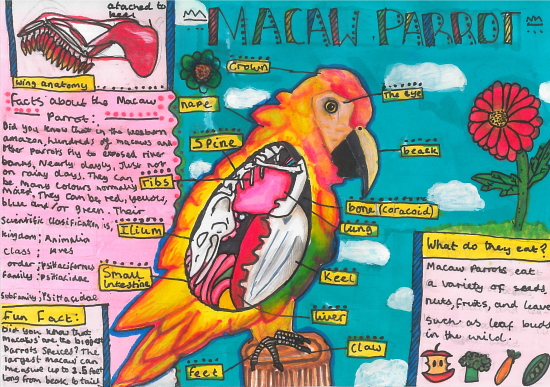 MACAW PARROT
atached to
keel
Wing anatomy
Facts about the Macaw
Parrot:
Did you know that in the western
amazon, hundreds of macaws and
other parrots fly to exposed river
banks, Nearly dayly, Just not
on rainy days. They can
be many colours normally
mixed. They can be red, yellow,
blue and/or green. Their
Scientific Clasification is,
Kingdom; Animalia
Class; Aves
order; Psittaciformes
Family; Psittacidae
Subfamily; Psittacidae
Fun Fact:
Did you know that
Macaws are the biggest
Parrots Species? The
largest macaw can
measure up to 3.5 feet
long from beak to tail.
Crown
nape
Spine
ribs
Ilium
Small
Intestine
Feet
The eye
beack
bone (coracoid)
lung
Keel
liver
Claw
What do they eat?
Macaw Parrots eat
a variety of seeds,
nuts, fruits, and leaves
such as leaf buds
in the wild.